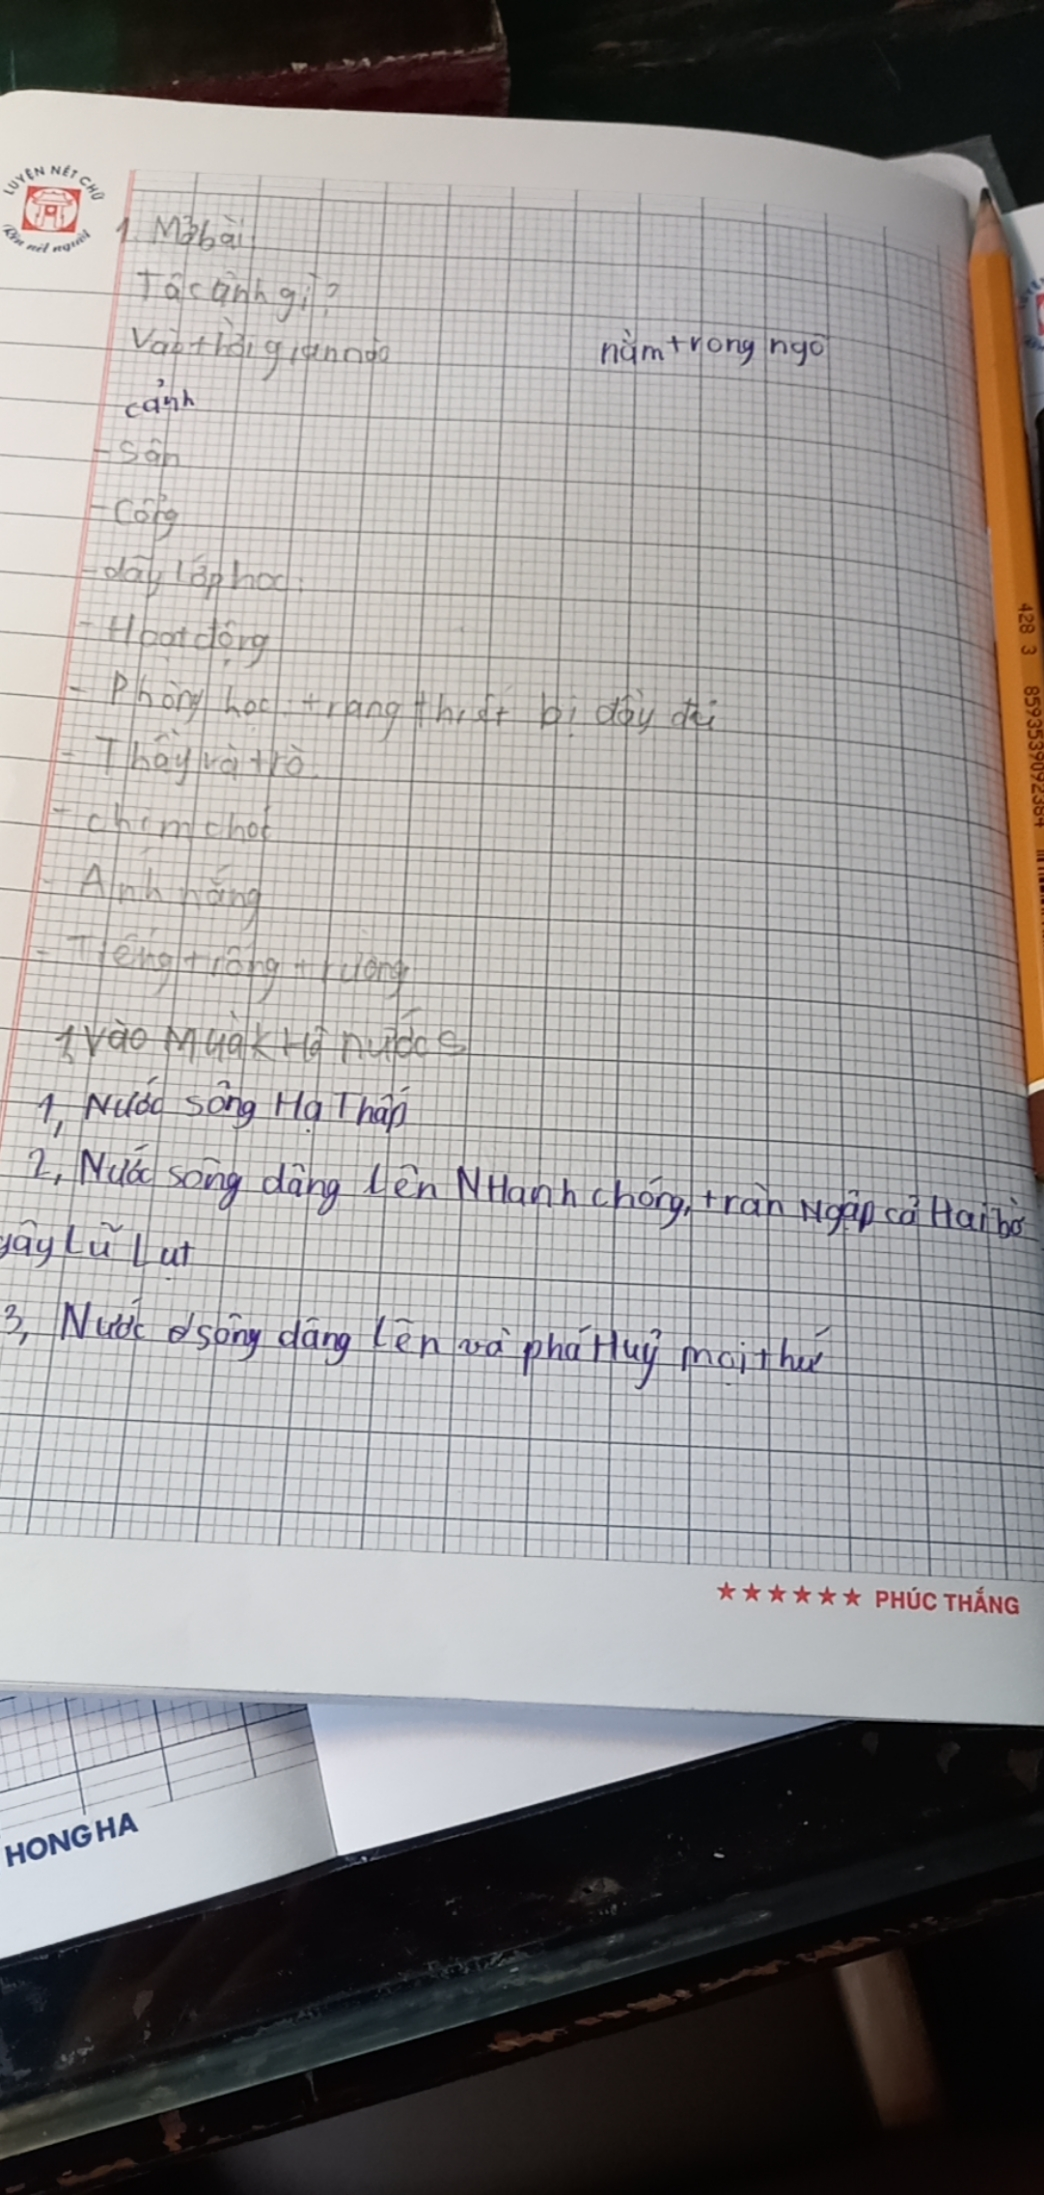 LUYỆN NÉT CHỮ
Rèn nết người
1. Mở bài
Tả cảnh gì?
Vào thời gian nào
nằm trong ngõ
cảnh
- Sân
- Cổng
- dãy lớp học.
- Hoạt động
- Phòng học. trang thiết bị đầy đủ
- Thầy và trò.
- chim chót
- Ánh nắng
- Tiếng trống trường
1, Nước sông Hạ Thấp
2, Nước sông dâng Lên NHanh chóng, tràn Ngập cả Hai bờ
gây Lũ Lụt
3, Nước sông dâng lên và phá Huỷ mọi thứ
★★★★★★ PHÚC THẮNG
HONG HA
428 3 8593539092384